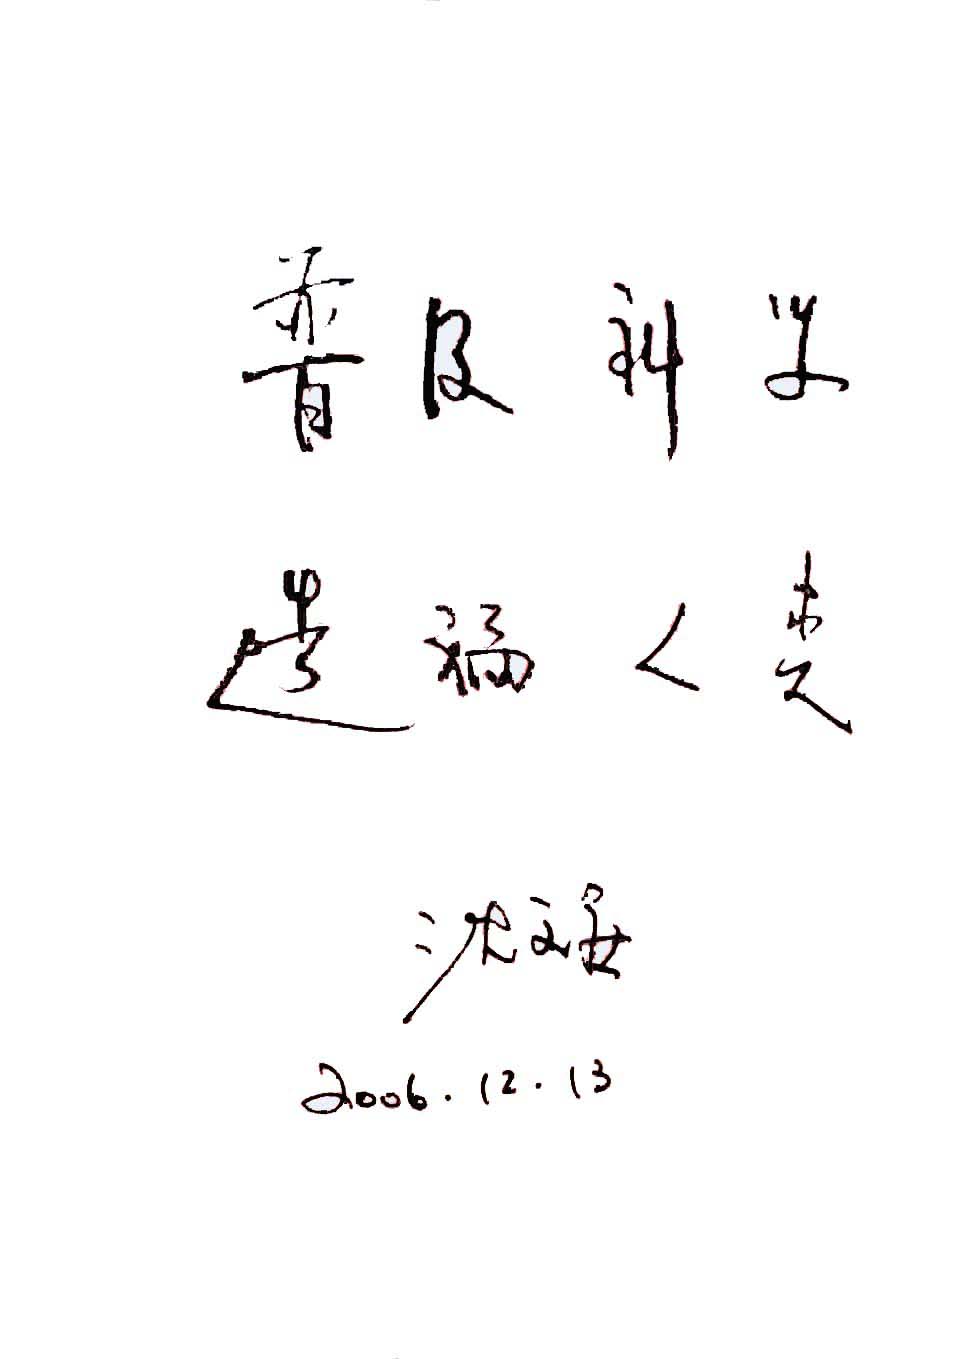 普及科学
造福人类
沈文庆
2006.12.13